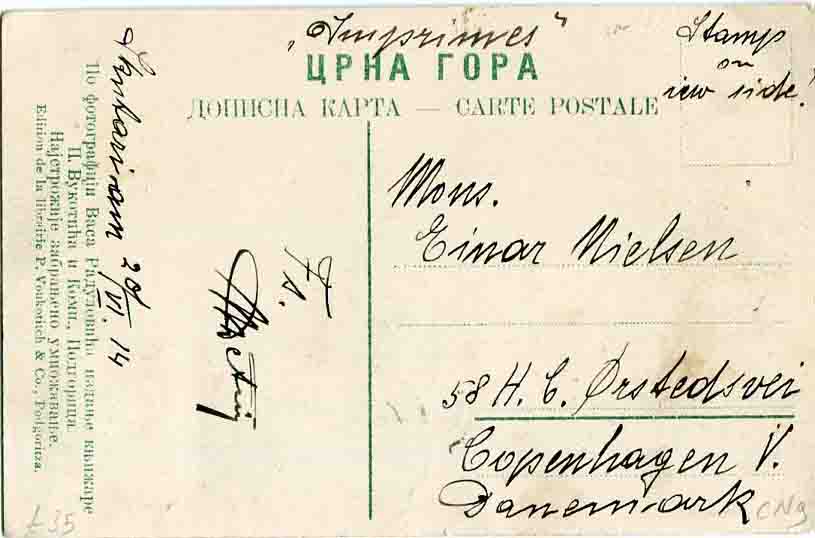 „Imprimes“
Stamp
on
view side!
ЦРНА ГОРА
ДОПИСНА КАРТА — CARTE POSTALE
Mons.
Einar Nielsen
58 H. C. Ørstedsvei
Copenhagen V.
Danemark
Fs.
20/VI. 14
По фотографији Васа Радуловића издање књижаре
П. Вукотића и Комп., Подгорица.
Најстрожије забрањено умножавање.
Edition de la librairie P. Voukotitch & Co., Podgoritza.
£35